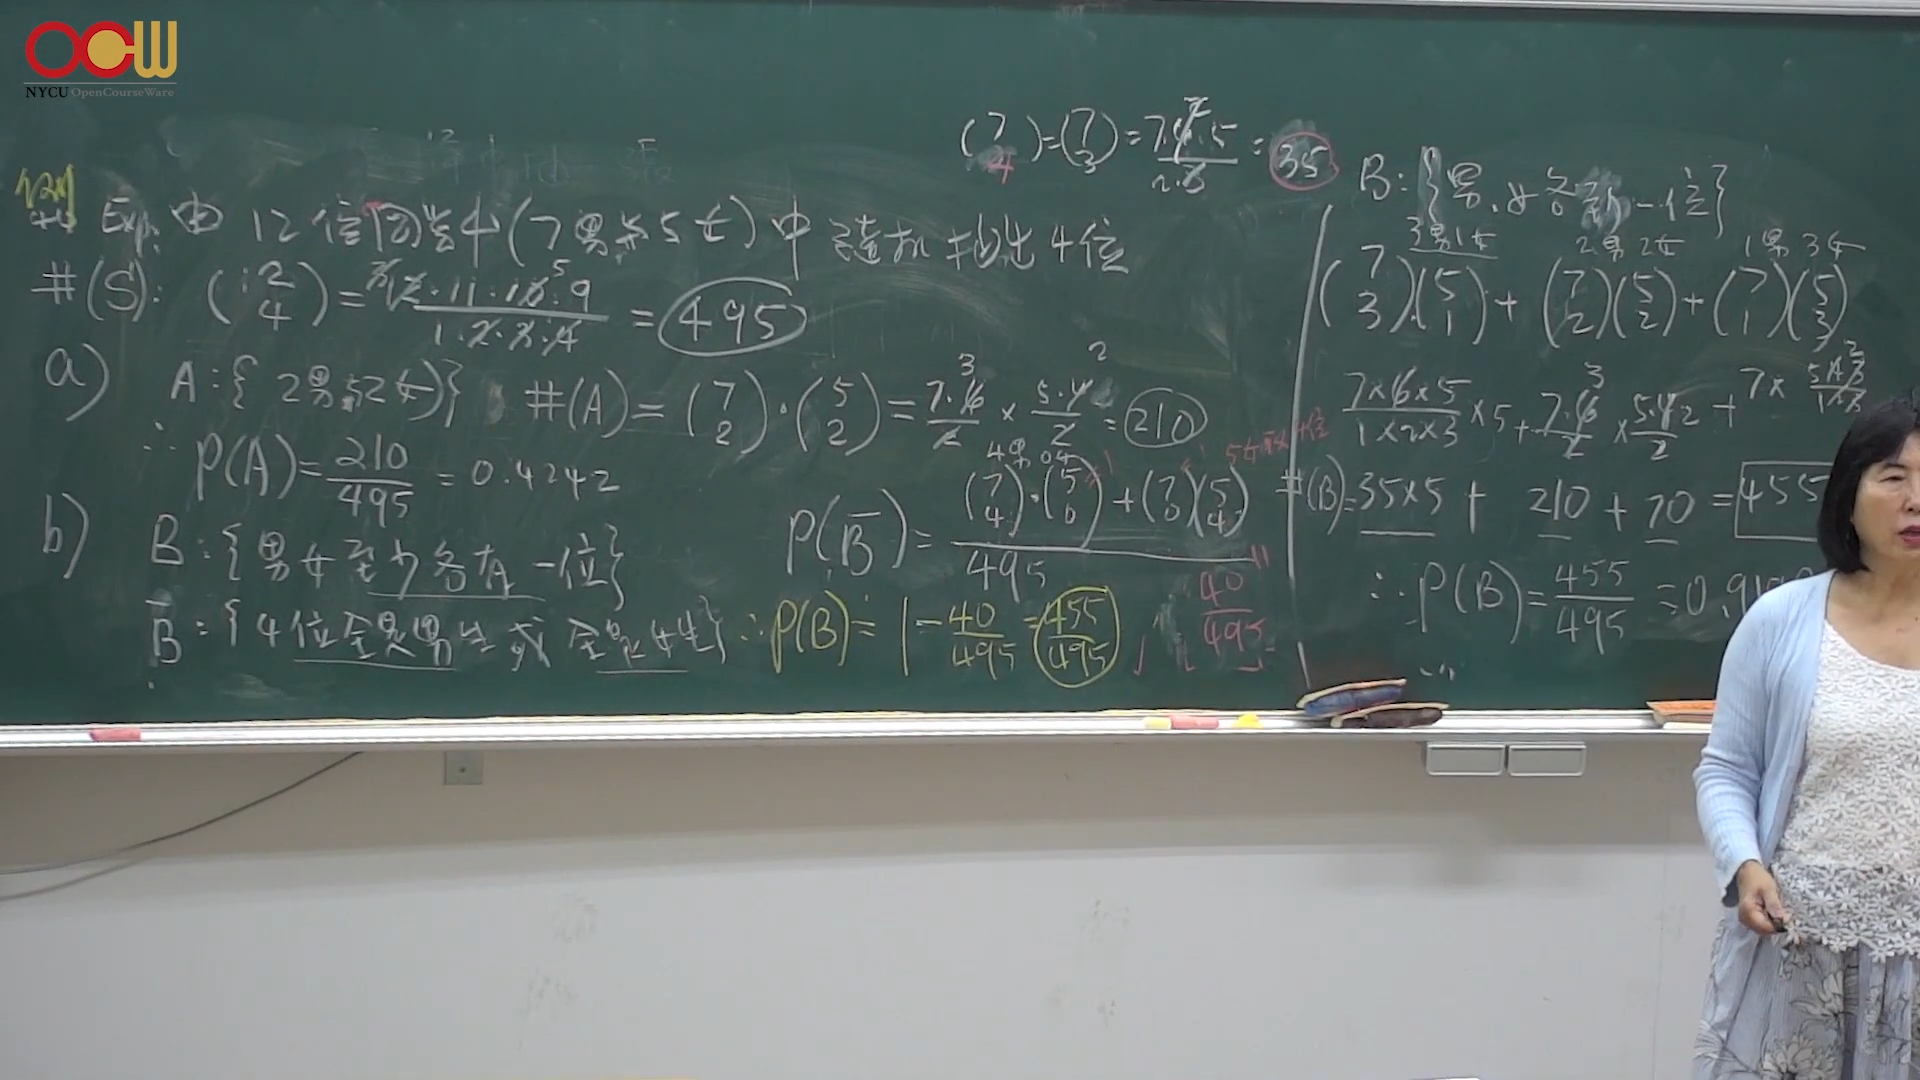 OCW
NYCU OpenCourseWare
(7 4) = (7 3) = 7·6·5 / 2·3 = 35
Exp. 由 12 位同学中 (7男与5女) 中 随机抽出 4 位
#(S): (12 4) = 12·11·10·9 / 1·2·3·4 = 495
a) A:{2男与2女} #(A) = (7 2)·(5 2) = 7·6/2 × 5·4/2 = 210
∴ P(A) = 210/495 = 0.4242
b) B:{男女至少各有一位}
B̄:{4位全是男生或全是女生}
4男0女
P(B̄) = (7 4)·(5 0) + (7 0)(5 4) / 495
= 40/495
∴ P(B) = 1 - 40/495 = 455/495
B:{男、女各 一位}
3男1女 2男2女 1男3女
(7 3)(5 1) + (7 2)(5 2) + (7 1)(5 3)
7×6×5 / 1×2×3 × 5 + 7·6/2 × 5·4/2 + 7×
#(B) = 35×5 + 210 + 70 = 455
∴ P(B) = 455/495 = 0.91